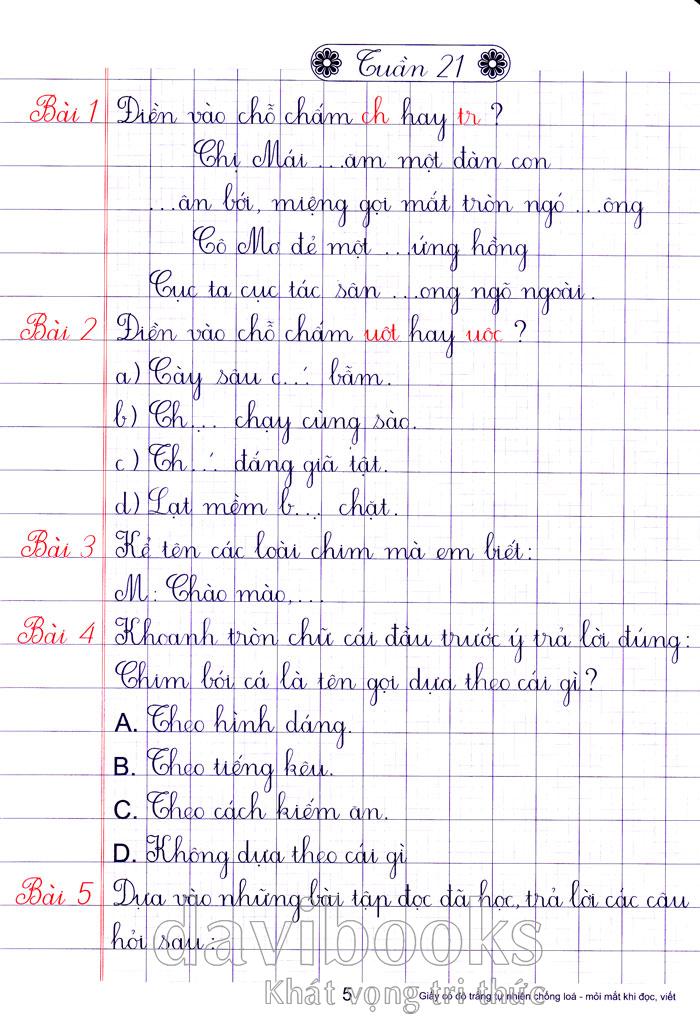 Tuần 21
Bài 1 Điền vào chỗ chấm ch hay tr ?
Chị Mái ...ăm một đàn con
...ân bới, miệng gọi mắt tròn ngó ...ông
Cô Mơ đẻ một ...ứng hồng
Cục ta cục tác sân ...ong ngõ ngoài.
Bài 2 Điền vào chỗ chấm uôt hay uôc ?
a) Cày sâu c...́ bẫm.
b) Ch... chạy cùng sào.
c) Th...́ đắng giã tật.
d) Lạt mềm b... chặt.
Bài 3 Kể tên các loài chim mà em biết:
M: Chào mào,...
Bài 4 Khoanh tròn chữ cái đầu trước ý trả lời đúng:
Chim bói cá là tên gọi dựa theo cái gì?
A. Theo hình dáng.
B. Theo tiếng kêu.
C. Theo cách kiếm ăn.
D. Không dựa theo cái gì
Bài 5 Dựa vào những bài tập đọc đã học, trả lời các câu
hỏi sau:
davibooks
Khát vọng tri thức
5 Giấy có độ trắng tự nhiên chống loá - mỏi mắt khi đọc, viết